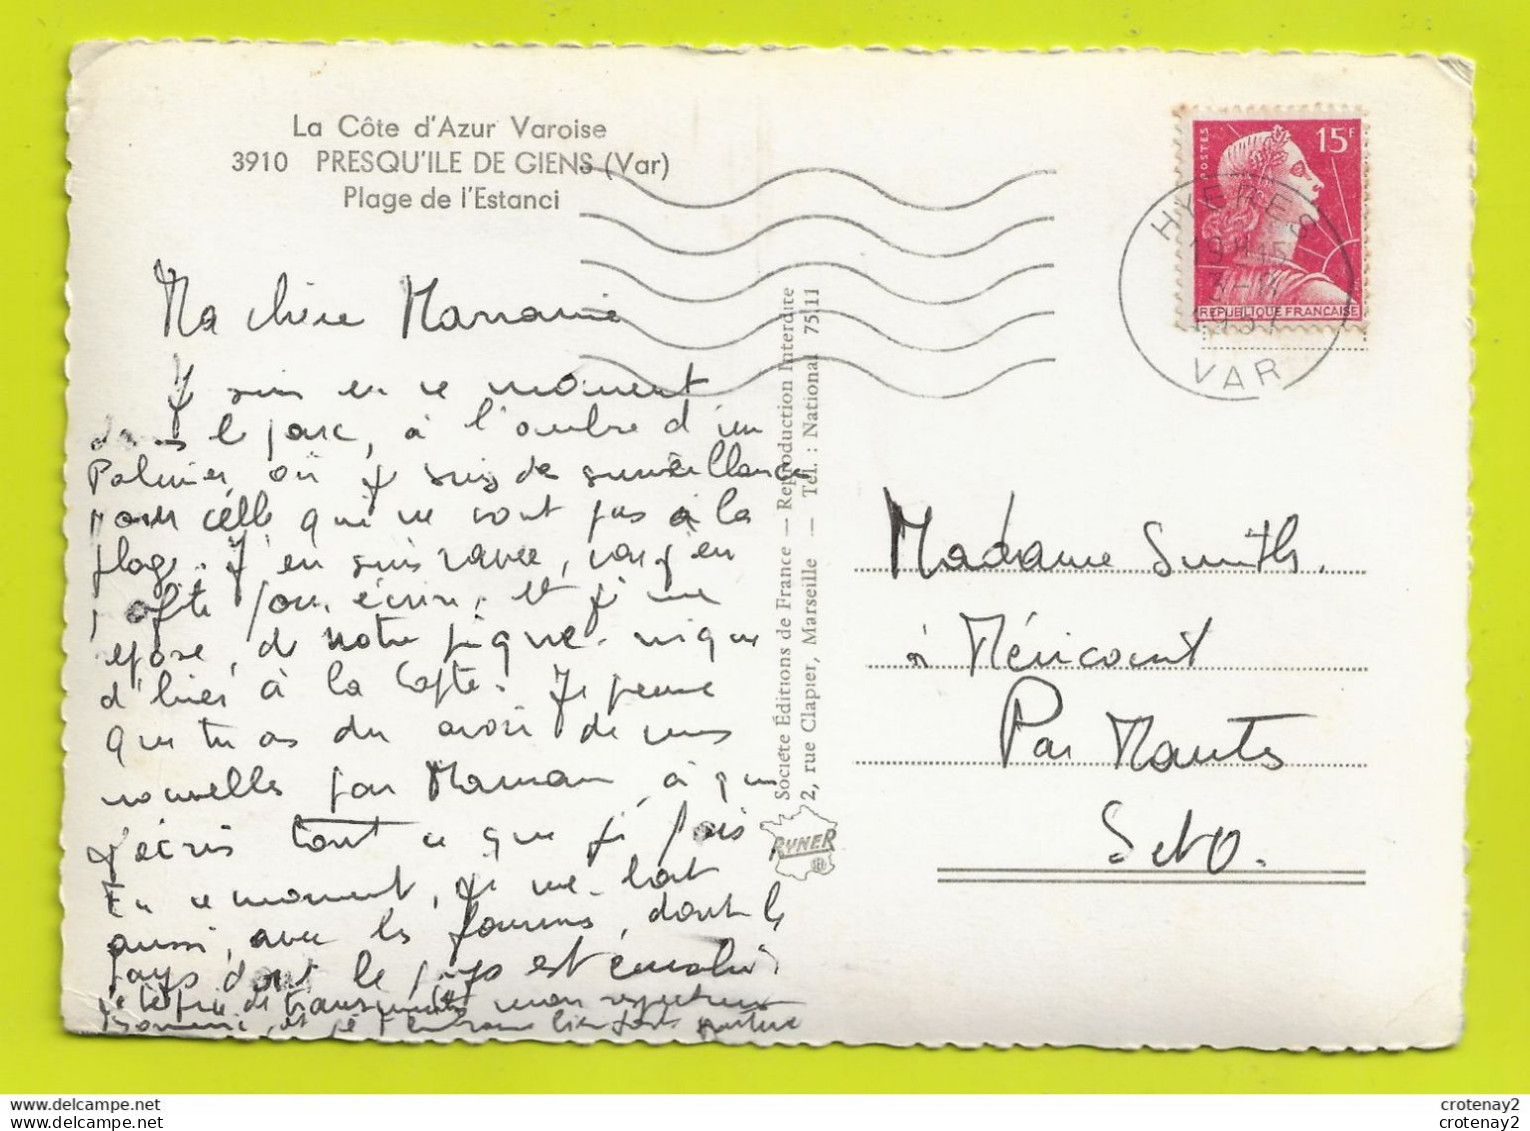 La Côte d'Azur Varoise
3910 PRESQU'ILE DE GIENS (Var)
Plage de l'Estanci
15F
POSTES
REPUBLIQUE FRANCAISE
HYERES
19H15
VAR
Ma chère Marraine
Je suis en ce moment
dans le parc, à l'ombre d'un
Palmier, où je suis de surveillance
pour celle qui ne vont pas à la
plage. J'en suis ravie, car j'en
profite pour écrire, et je me
repose, de notre pique-nique
d'hier à la Capte. Je pense
que tu as du avoir de mes
nouvelles par Maman, à qui
j'écris tout ce que je fais
En ce moment, je me bat
aussi, avec les fourmis, dont le
pays dont le pays est envahi.
je te prie de transmettre mon respectueux
et je t'embrasse bien fort
Société Éditions de France — Reproduction Interdite
2, rue Clapier, Marseille — Tél. : National 75.11
RYNER
Madame Smith.
à Méricourt
Par Mantes
S et O.
crotenay2
crotenay2
crotenay2
crotenay2